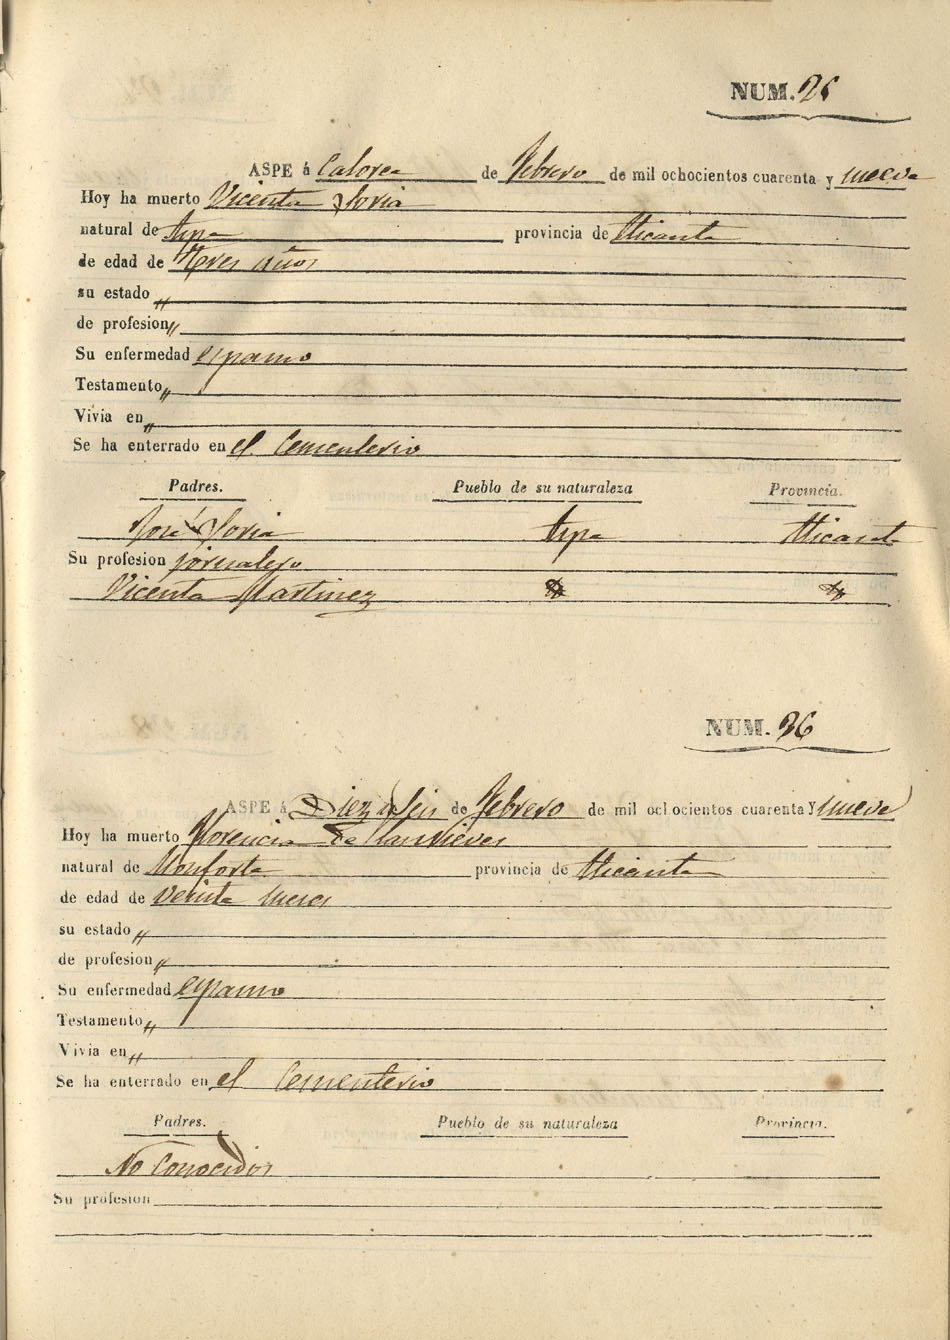 NUM. 25
ASPE á Catorce de Febrero de mil ochocientos cuarenta y nueve
Hoy ha muerto Vicenta Soria
natural de Aspe provincia de Alicante
de edad de Tres años
su estado „
de profesion „
Su enfermedad espasmo
Testamento „
Vivia en „
Se ha enterrado en el Cementerio
Padres. Pueblo de su naturaleza Provincia.
José Soria Aspe Alicante
Su profesion jornalero
Vicenta Martinez
NUM. 26
ASPE á Diez y Seis de Febrero de mil ochocientos cuarenta y nueve
Hoy ha muerto Florencia de las Nieves
natural de Monforte provincia de Alicante
de edad de veinte meses
su estado „
de profesion „
Su enfermedad espasmo
Testamento „
Vivia en „
Se ha enterrado en el Cementerio
Padres. Pueblo de su naturaleza Provincia.
No Conocidos
Su profesion